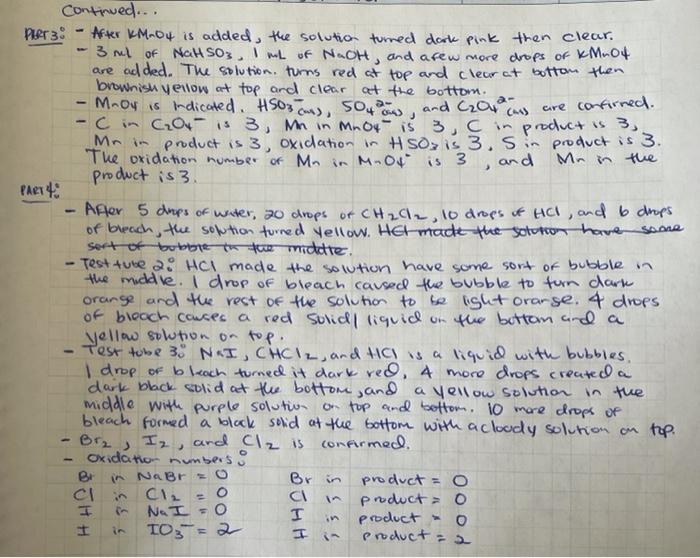 Continued...
PART 3: - After KMnO4 is added, the solution turned dark pink then clear.
- 3 mL of NaHSO3, 1 mL of NaOH, and a few more drops of KMnO4
are added. The solution. turns red at top and clear at bottom then
brownish yellow at top and clear at the bottom.
- MnO4 is indicated. HSO3⁻(aq), SO4²⁻(aq), and C2O4²⁻(aq) are confirmed.
- C in C2O4⁻ is 3, Mn in MnO4⁻ is 3, C in product is 3,
Mn in product is 3, oxidation in HSO3 is 3, S in product is 3.
The oxidation number of Mn in MnO4⁻ is 3, and Mn in the
product is 3.
PART 4:
- After 5 drops of water, 20 drops of CH2Cl2, 10 drops of HCl, and 6 drops
of bleach, the solution turned yellow. HCl made the solution have some
sort of bubble in the middle.
- Test tube 2: HCl made the solution have some sort of bubble in
the middle. 1 drop of bleach caused the bubble to turn dark
orange and the rest of the solution to be light orange. 4 drops
of bleach causes a red solid/liquid on the bottom and a
yellow solution on top.
- Test tube 3: NaI, CHCl2, and HCl is a liquid with bubbles.
1 drop of bleach turned it dark red. 4 more drops created a
dark black solid at the bottom, and a yellow solution in the
middle with purple solution on top and bottom. 10 more drops of
bleach formed a black solid at the bottom with a cloudy solution on top.
- Br2, I2, and Cl2 is confirmed.
- Oxidation numbers:
Br in NaBr = 0 Br in product = 0
Cl in Cl2 = 0 Cl in product = 0
I in NaI = 0 I in product = 0
I in IO3⁻ = 2 I in product = 2